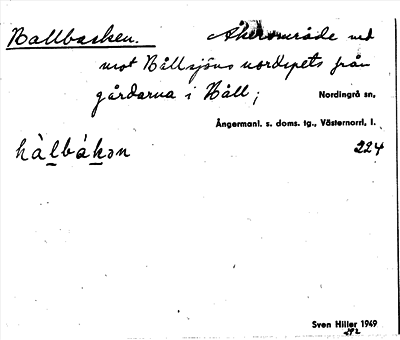 Hallbacken. Åkerområde ned
mot Hällsjöns nordspets från
gårdarna i Häll;
Nordingrå sn,
Ångermanl. s. doms. tg., Västernorrl. l.
hàlbákən 224
Sven Hiller 1949
292